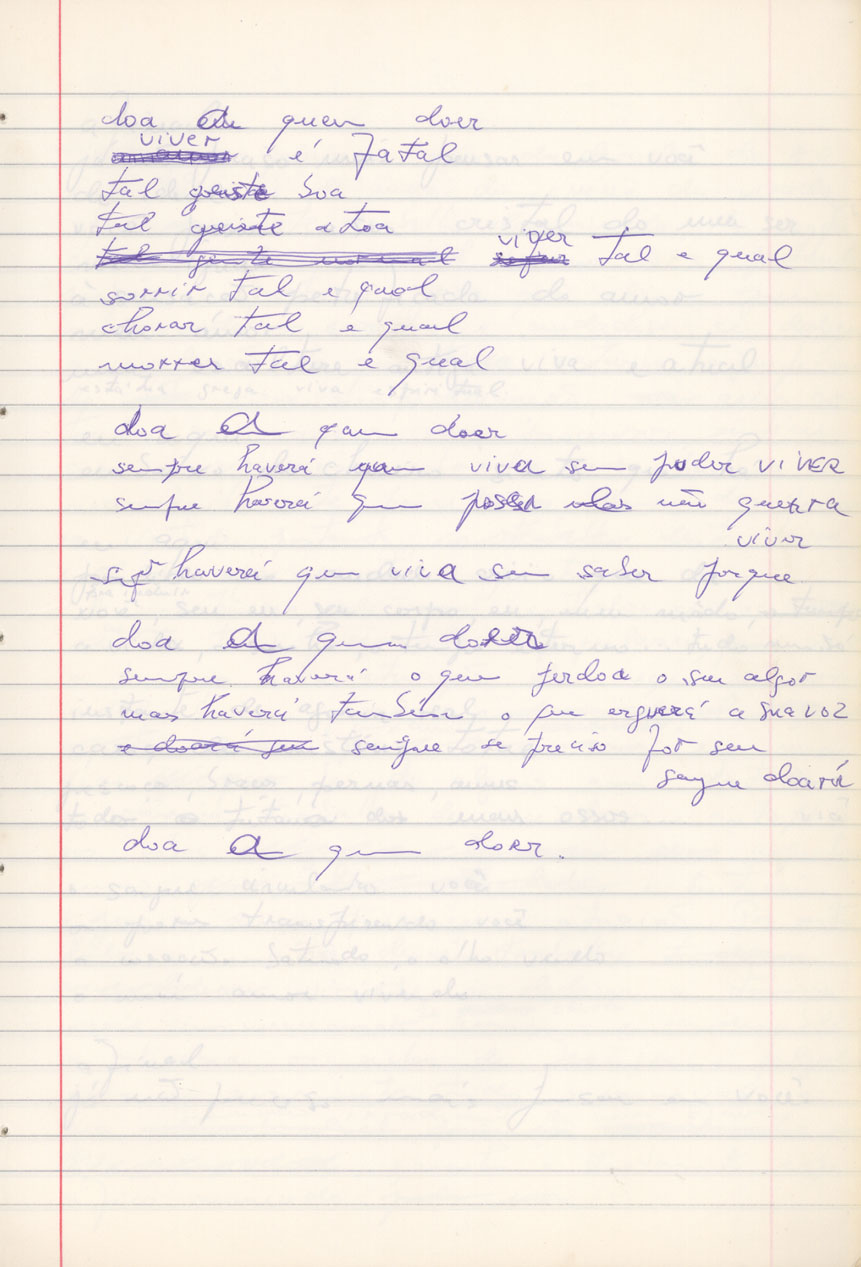 doa a quem doer
viver é fatal
tal gente boa
tal gente atoa
tal gente normal viver tal e qual
sorrir tal e qual
chorar tal e qual
morrer tal e qual
doa a quem doer
sempre haverá quem viva sem poder VIVER
sempre haverá quem possa mas não queira
viver
haverá quem viva sem saber porque
doa a quem doer
sempre haverá o que perdoa o seu algoz
mas haverá também o que erguerá a sua voz
e doará seu sangue se preciso for seu
sangue doará
doa a quem doer.